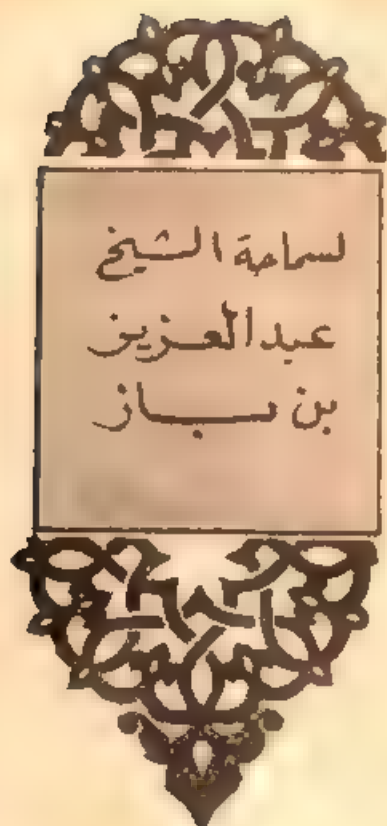 لسماحة الشيخ
عبدالعزيز
بن باز